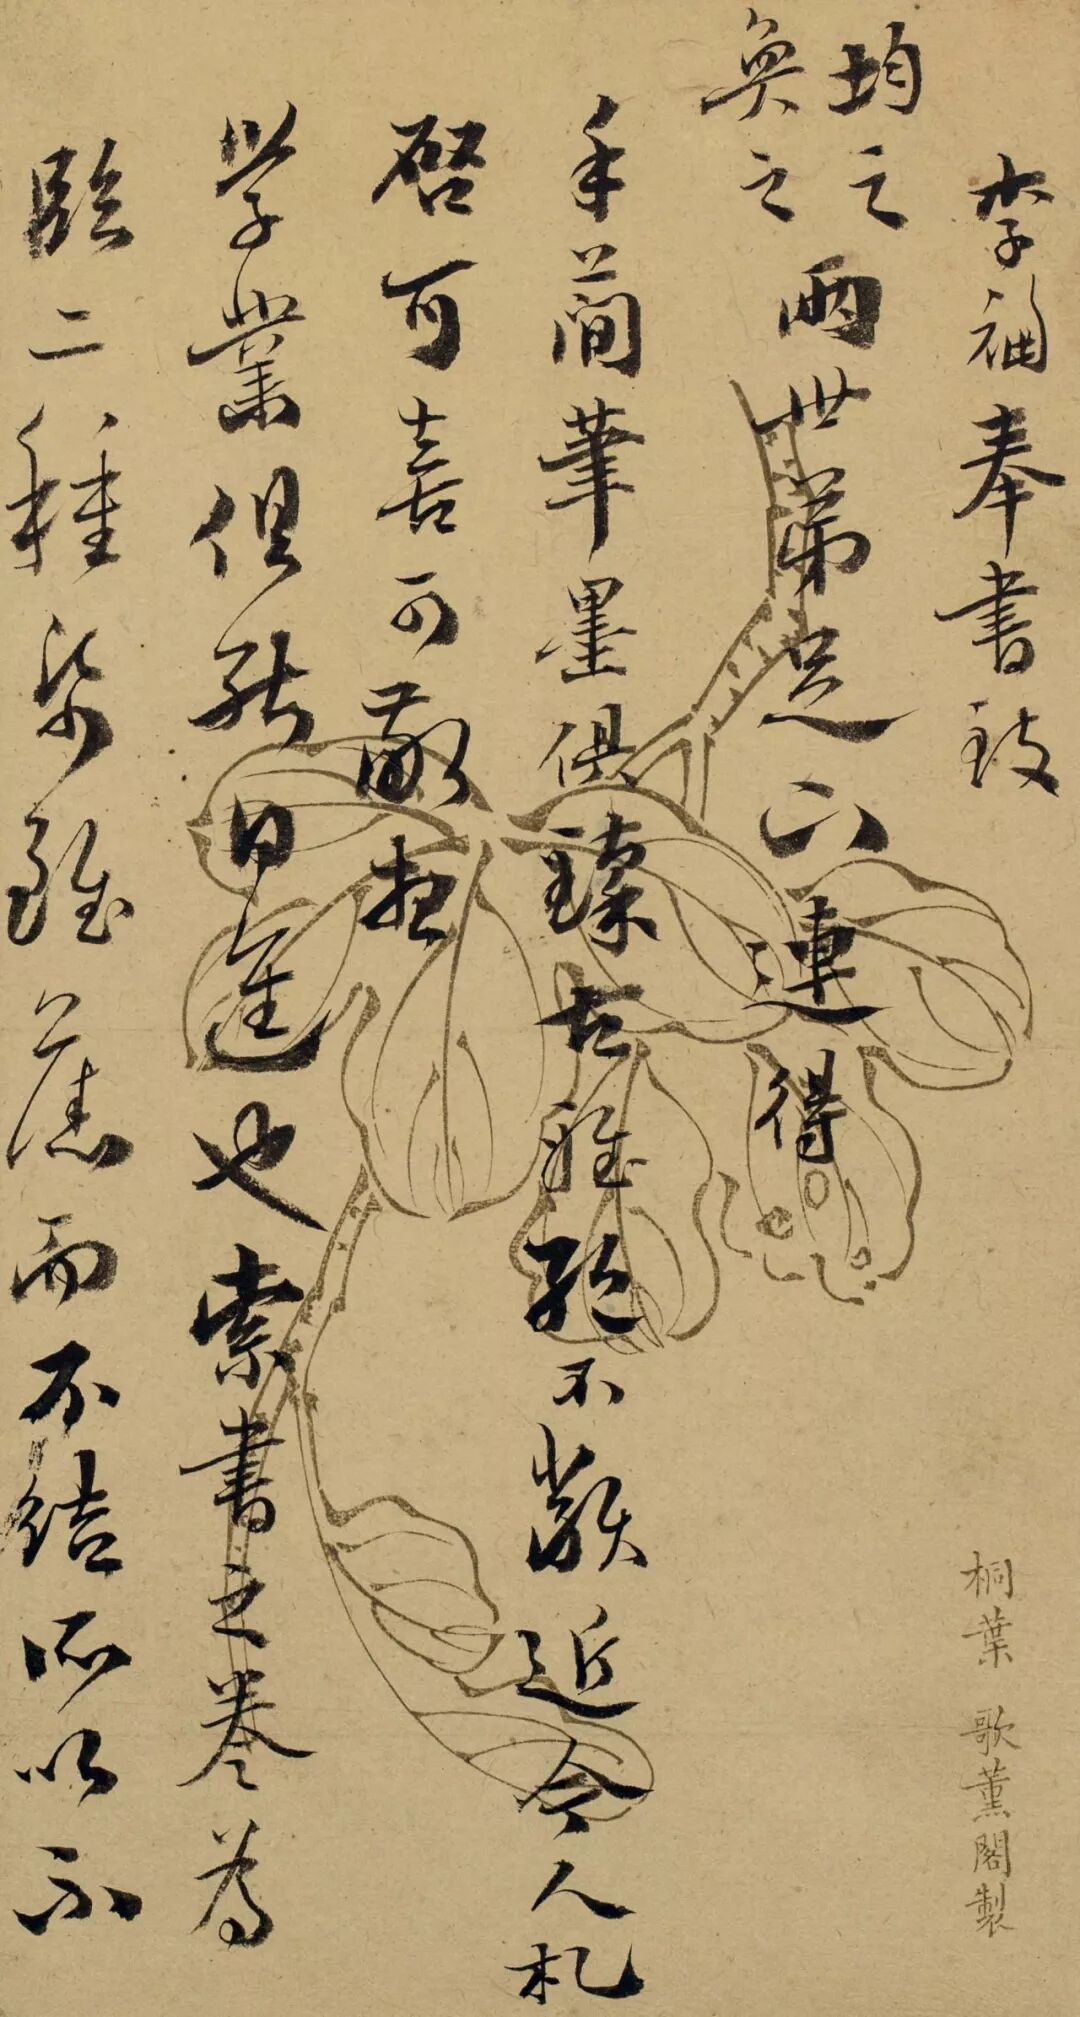 李福奉書致
均之
奐之
兩世弟足下連得
手簡筆墨俱臻古雅絕不類近今人札
啓可喜可敬想
學業俱能日進也索書之卷為
臨二種帋雖舊而不結所以不
桐葉 歌薰閣製